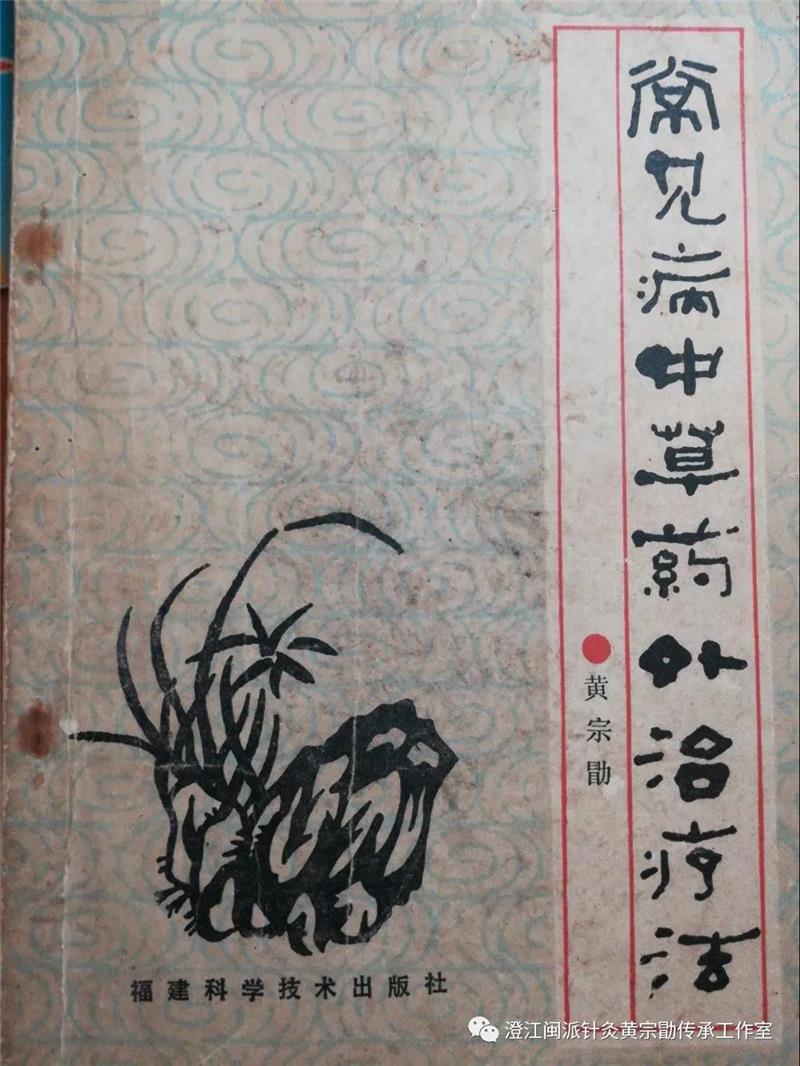 常见病中草药外治疗法
黄宗勖
福建科学技术出版社
澄江闽派针灸黄宗勖传承工作室